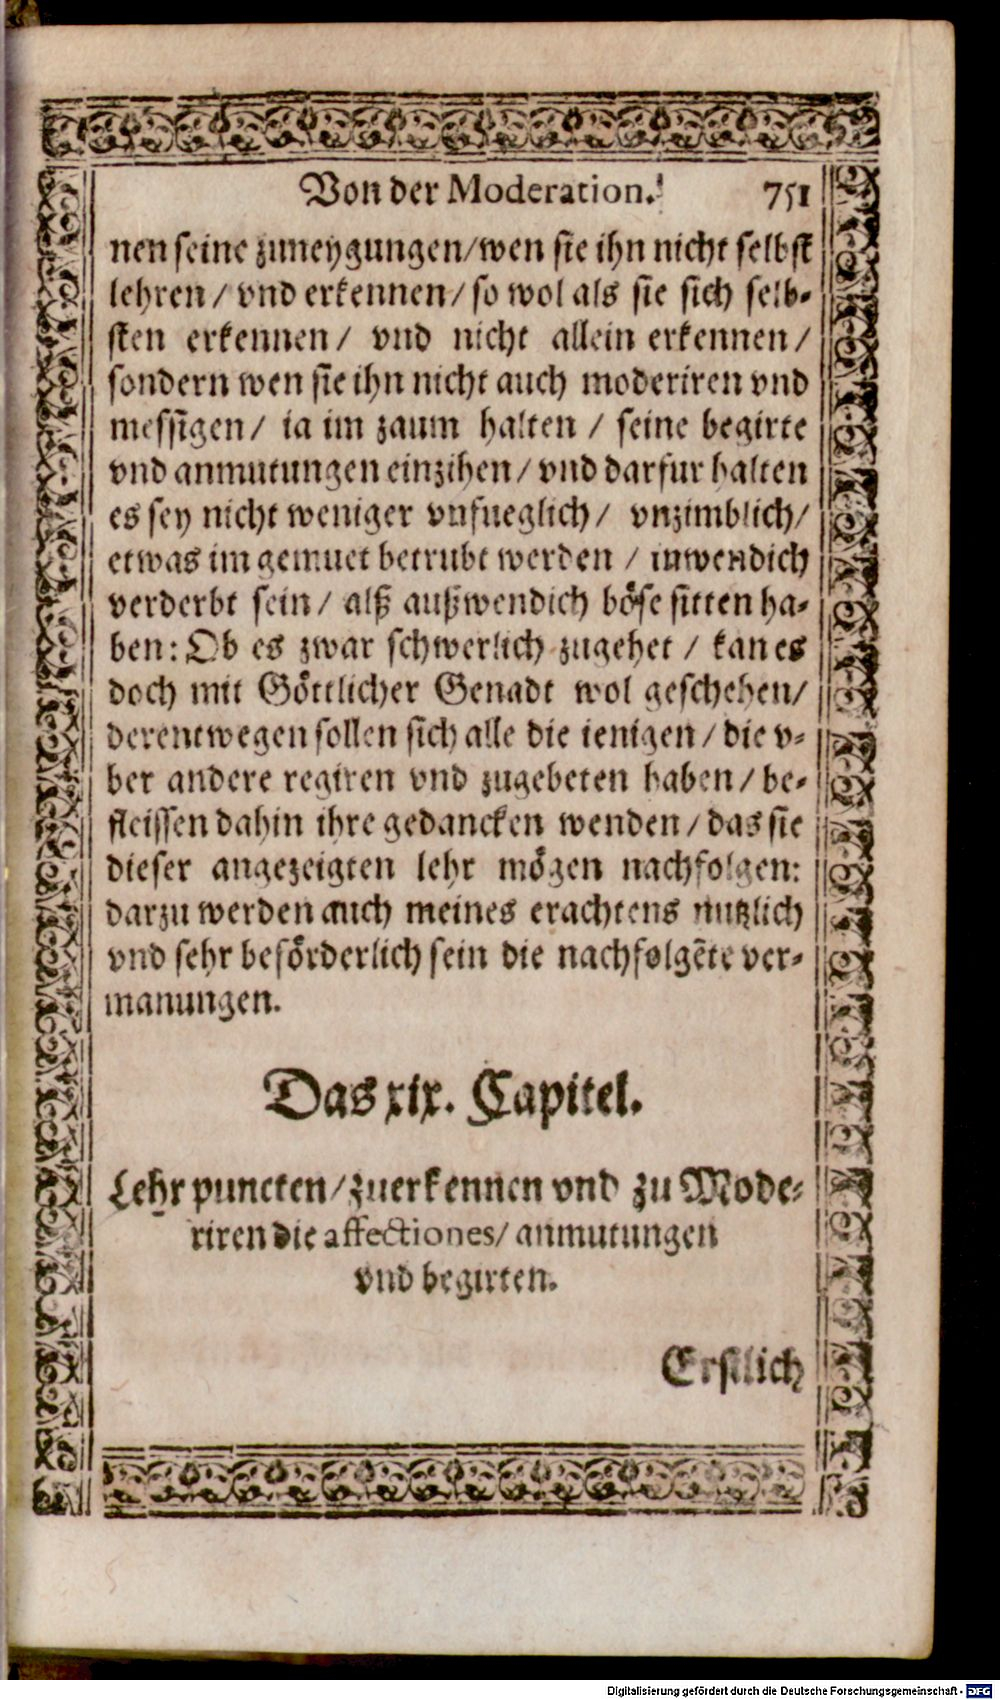 Von der Moderation. 751
nen seine zuneygungen/wen sie ihn nicht selbst
lehren/ vnd erkennen/ so wol als sie sich selb-
sten erkennen/ vnd nicht allein erkennen/
sondern wen sie ihn nicht auch moderiren vnd
messigen/ ia im zaum halten / seine begirte
vnd anmutungen einzihen/ vnd darfur halten
es sey nicht weniger vnfueglich/ vnzimblich/
etwas im gemuet betrubt werden / inwendich
verderbt sein/ alß außwendich böse sitten ha-
ben: Ob es zwar schwerlich zugehet / kan es
doch mit Göttlicher Genadt wol geschehen/
derentwegen sollen sich alle die ienigen/ die v-
ber andere regiren vnd zugebeten haben/ be-
fleissen dahin ihre gedancken wenden/ das sie
dieser angezeigten lehr mögen nachfolgen:
darzu werden auch meines erachtens nutzlich
vnd sehr beförderlich sein die nachfolgẽte ver-
manungen.
Das xix. Capitel.
Lehr puncten/zuerkennen vnd zu Mode-
riren die affectiones/ anmutungen
vnd begirten.
Erstlich
Digitalisierung gefördert durch die Deutsche Forschungsgemeinschaft - DFG